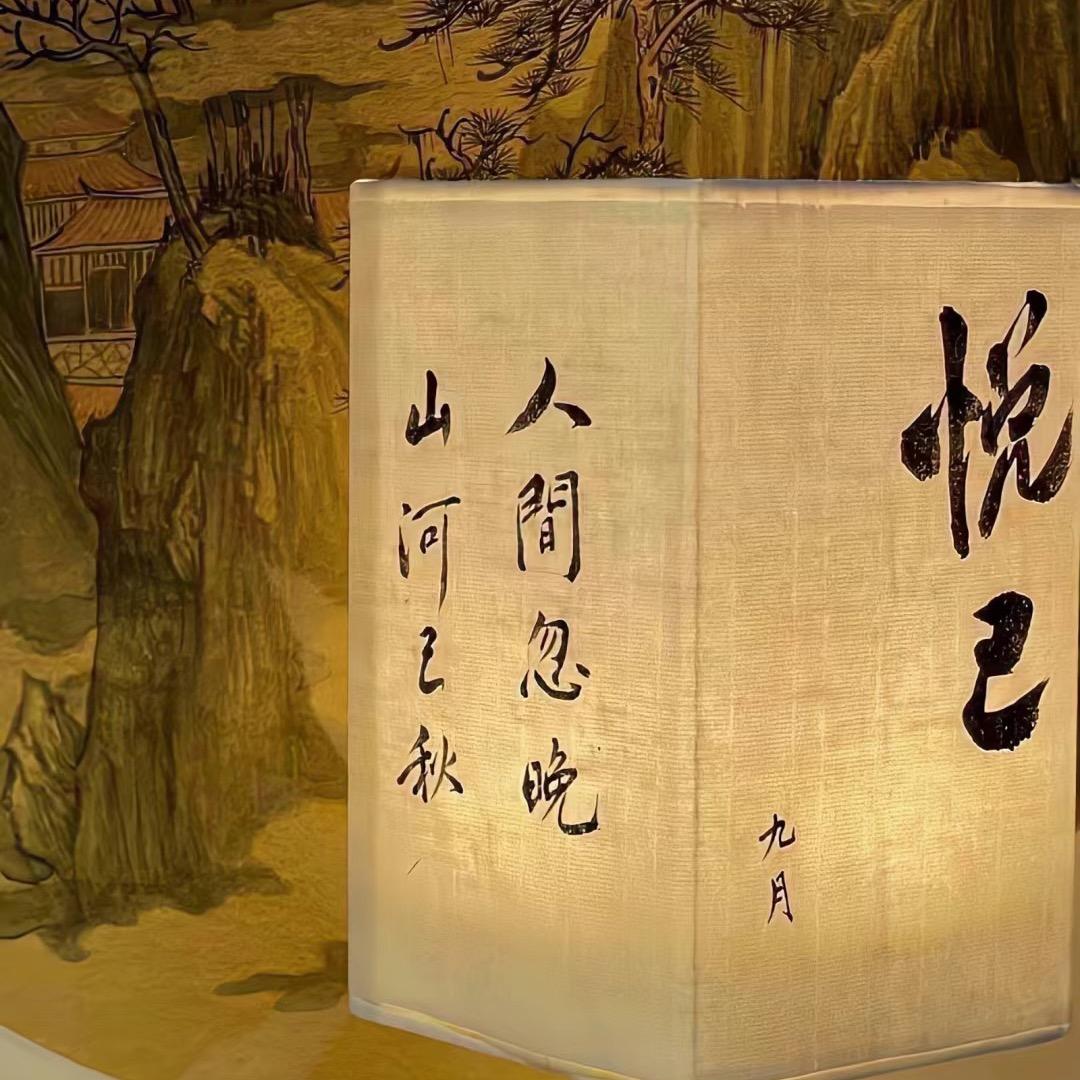 悦己
九月
人間忽晚
山河已秋